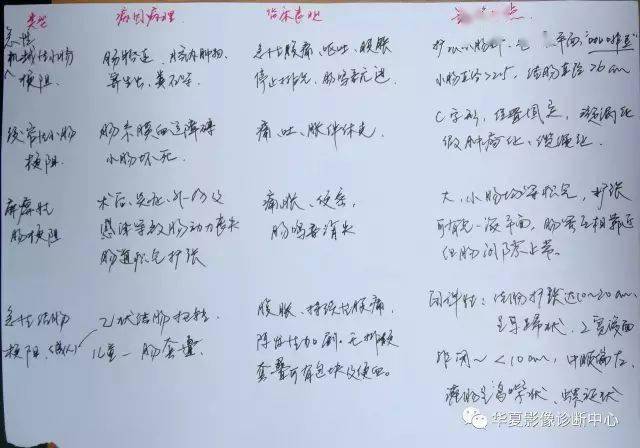 类型 病因病理 临床表现 点
急性 肠粘连、肠内肿物 急性腹痛、呕吐、腹胀 扩 小肠 平面
机械性小肠 寄生虫、粪石等 停止排气、肠鸣音亢进 小肠直径>2.5, 结肠直径>6cm
梗阻.
绞窄性小肠 肠系膜血运障碍 痛、吐、胀、休克 C字形, 位置固定,
梗阻. 小肠坏死 假肿瘤征、
麻痹性 术后、炎症、外伤及 痛胀、便秘, 大、小肠均等积气, 扩张
肠梗阻 感染导致肠动力丧失 肠鸣音消失 气-液平面, 肠管互相靠近
肠道积气扩张 但肠间隙正常。
急性结肠 乙状结肠扭转, 腹胀、持续性腹痛, 闭袢性: 结肠扩张达10~20cm,
梗阻.(成人) 儿童一肠套叠. 阵发性加剧. 无排便 呈马蹄状,
套叠可有包块及便血. <10cm,
灌肠呈鸟嘴状、螺旋状
华夏影像诊断中心